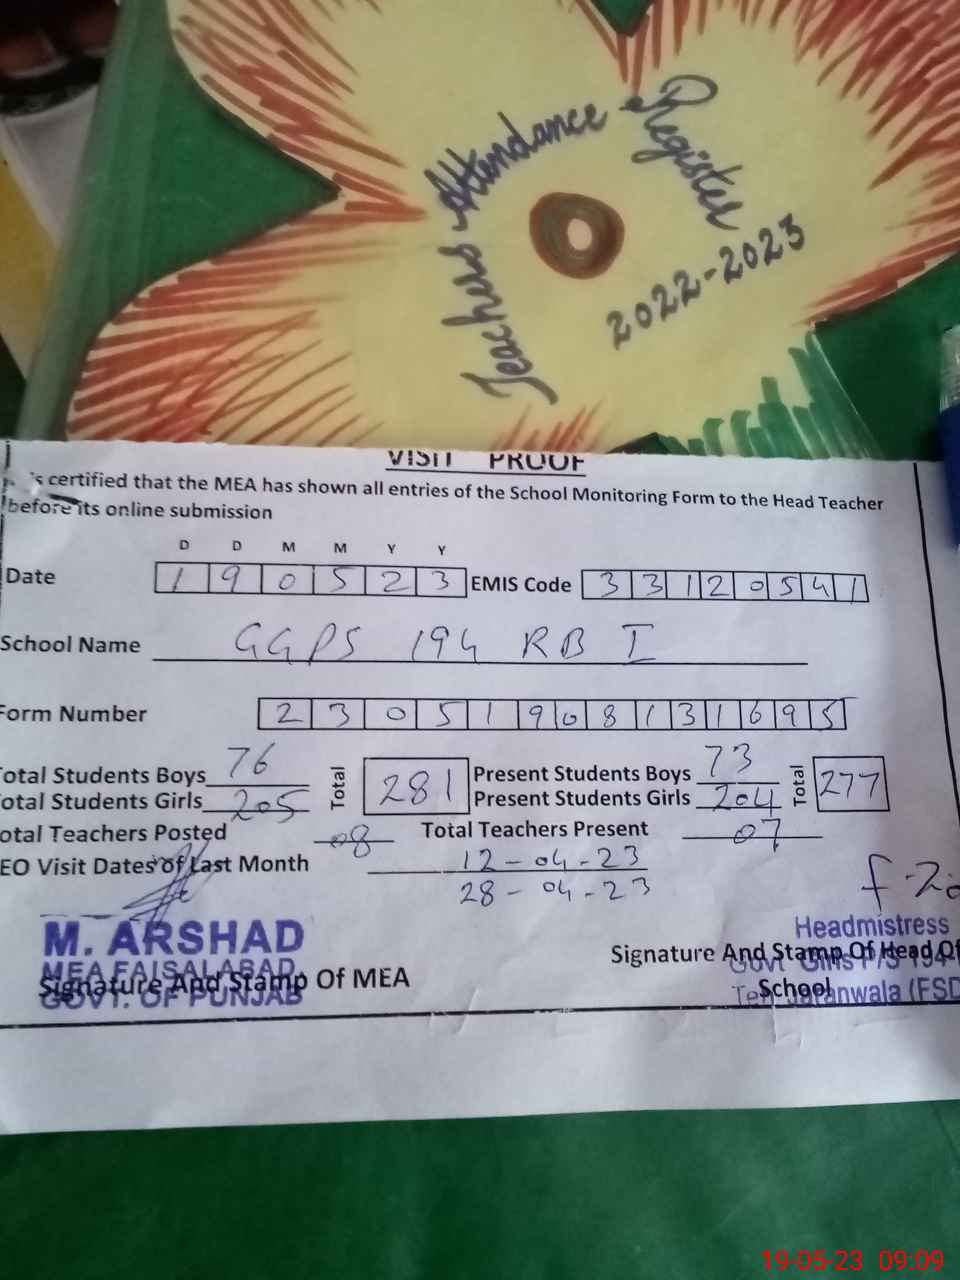 Teachers Attendance Register
2022-2023
VISIT PROOF
is certified that the MEA has shown all entries of the School Monitoring Form to the Head Teacher
before its online submission
D D M M Y Y
Date 1 9 0 5 2 3 EMIS Code 3 3 1 2 0 5 4 1
School Name GGPS 194 RB I
Form Number 2 3 0 5 1 9 0 8 1 3 1 6 9 5
Total Students Boys 76 Total 281 Present Students Boys 73 Total 277
Total Students Girls 205 Present Students Girls 204
Total Teachers Posted 08 Total Teachers Present 07
EO Visit Dates of Last Month 12-04-23
28-04-23
M. ARSHAD
MEA FAISALABAD
GOVT. OF PUNJAB
Signature And Stamp Of MEA
Headmistress
Govt Girls P/S 194
Teh Jaranwala (FSD
Signature And Stamp Of Head Of
School
19-05-23 09:09